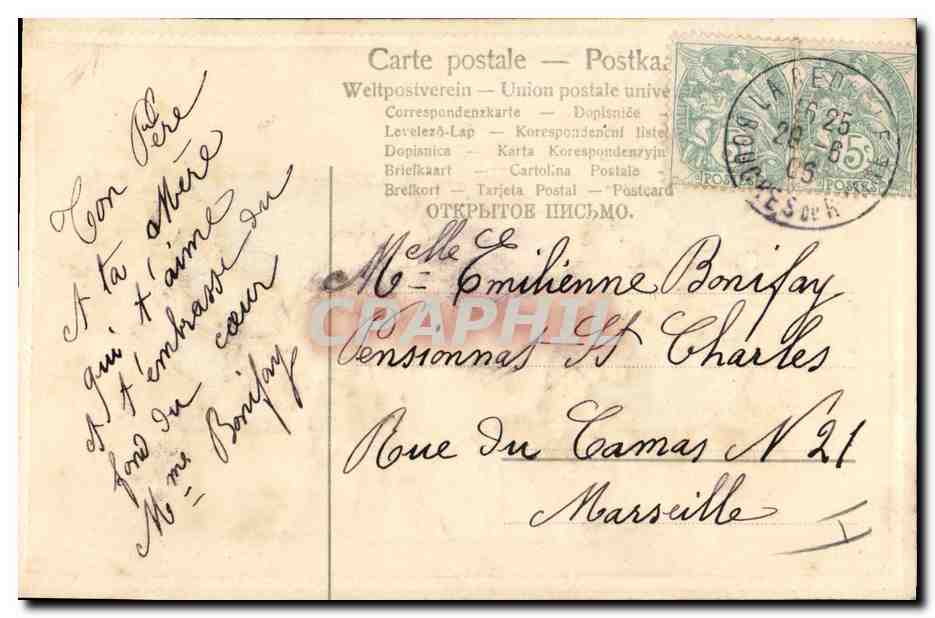 Carte postale — Postka
Weltpostverein — Union postale unive
Correspondenzkarte — Dopisnice
Levelező-Lap — Korespondencni liste
Dopisnica — Karta Korespondenzyjn
Briefkaart — Cartolina Postale
Brefkort — Tarjeta Postal — Postcard
ОТКРЫТОЕ ПИСЬМО.
5c
POSTES
BOUCHES DU R
25
6
06
Ton Père
et ta Mère
qui t'aime
et t'embrasse du
fond du cœur
Mme Bonifay
Melle Emilienne Bonifay
Pensionnat St Charles
Rue du Camas N 21
Marseille
CPAPHIL